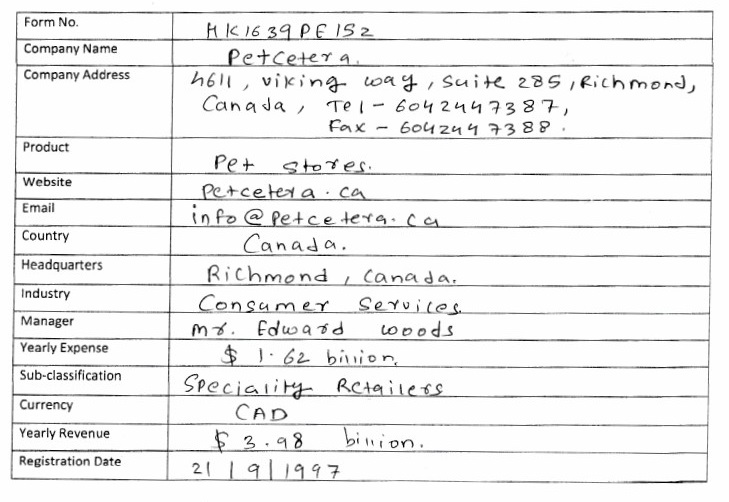 Form No. HK1639PE152
Company Name Petcetera.
Company Address 4611, viking way, Suite 285, Richmond,
Canada, Tel - 6042447387,
Fax - 6042447388.
Product Pet stores.
Website Petcetera.ca
Email info@Petcetera.ca
Country Canada.
Headquarters Richmond, Canada.
Industry Consumer Services.
Manager Mr. Edward woods
Yearly Expense $ 1.62 billion.
Sub-classification Speciality Retailers
Currency CAD
Yearly Revenue $ 3.98 billion.
Registration Date 21/9/1997